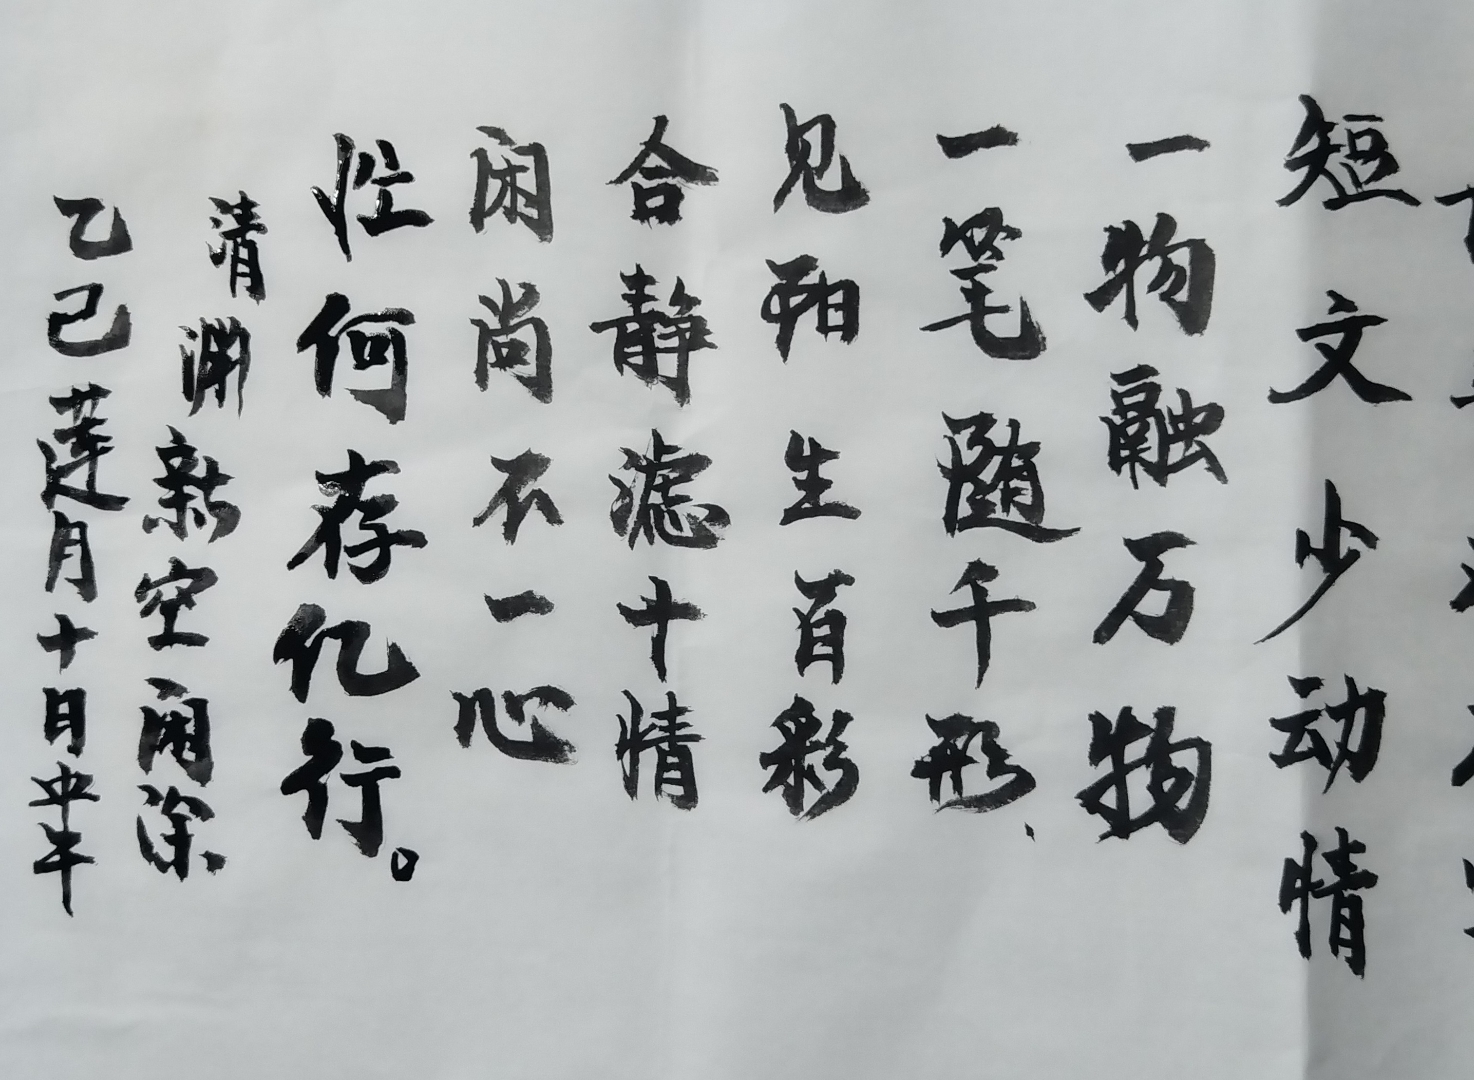 短文少动情
一物融万物
一笔随千形、
见和生百彩
合静滤十情
闲尚不一心
性何存亿行。
清渊新空雨深
乙己莲月十日中午